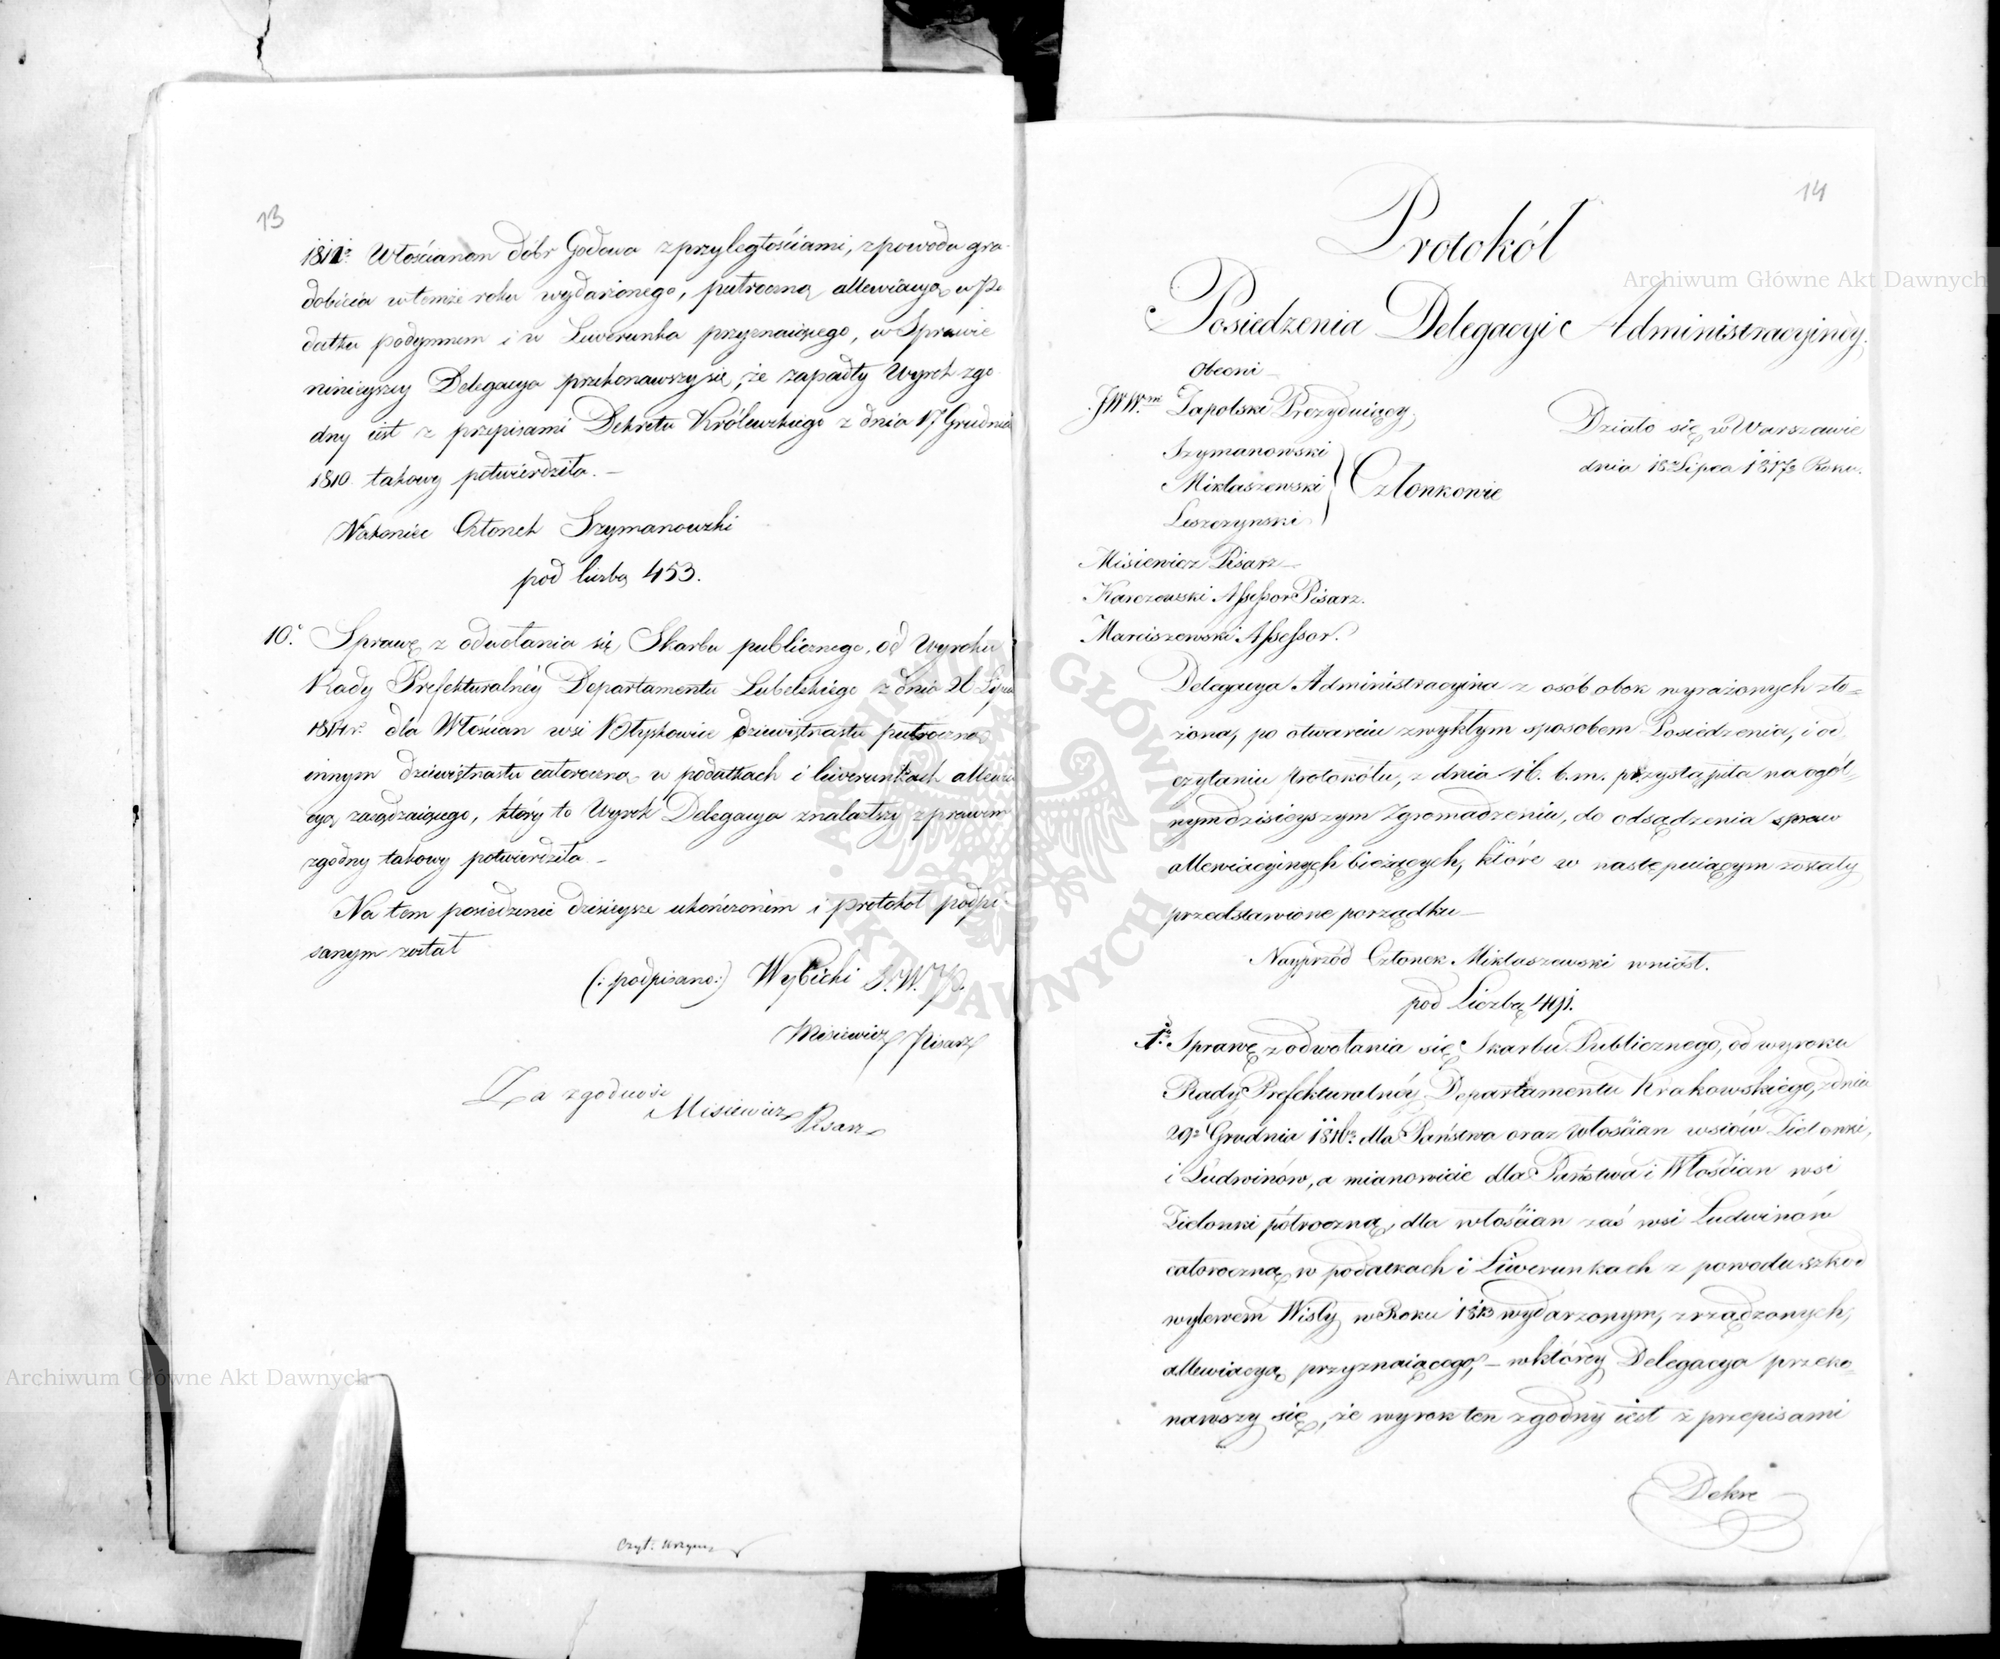 13
1811. Włościanom dóbr Godowa z przyległościami, z powodu gra-
dobicia w temże roku wydarzonego, pułroczną allewiacyą w Po
datku podymnem i w Liwerunku przyznaiącego, w Sprawie
ninieyszey Delegacya przekonawszy się, że zapadły Wyrok zgo
dny iest z przepisami Dekretu Królewskiego z dnia 17 Grudnia
1810 takowy potwierdziła. —
Nakoniec Członek Szymanowski
pod liczbą 453.
10. Sprawę z odwołania się Skarbu publicznego, od Wyroku
Rady Prefekturalnéy Departamentu Lubelskiego z dnia 26 Lipca
1814 r. dla Włościan wsi Błyskowice dziewiętnastu pułroczną
innym dziewiętnastu całoroczną w podatkach i liwerunkach allewia
cyą zasądzaiącego, który to Wyrok Delegacya znalazłszy z prawem
zgodny takowy potwierdziła —
Na tem posiedzenie dzisieysze ukończonem i protokół podpi-
sanym został
(: podpisano :) Wybicki S.W.P.
Misiewicz Pisarz
Za zgodność
Misiewicz Pisarz
14
Protokół
Posiedzenia Delegacyi Administracyinéy.
Obecni
JWWni Zapolski Prezyduiący
Działo się w Warszawie
dnia 18 Lipca 1817 Roku.
Szymanowski
Miklaszewski Członkowie
Leszczynski
Misiewicz Pisarz
Karczewski Assessor Pisarz.
Marciszewski Assessor.
Delegacya Administracyina z osób obok wyrażonych zło-
żona, po otwarciu zwykłym sposobem Posiedzenia, i od-
czytaniu Protokółu, z dnia 16. b.m. przystąpiła na ogól-
nym dzisieyszym Zgromadzeniu, do odsądzenia spraw
allewiacyinych bieżących, które w następuiącym zostały
przedstawione porządku —
Nayprzód Członek Miklaszewski wniósł.
pod Liczbą 491.
1. Sprawę z odwołania się Skarbu Publicznego, od wyroku
Rady Prefekturalnéy Departamentu Krakowskiego, z dnia
29 Grudnia 1816 r. dla Państwa oraz włościan wsiów Zielonki,
i Ludwinów, a mianowicie dla Państwa i Włościan wsi
Zielonki półroczną, dla włościan zaś wsi Ludwinów
całoroczną w podatkach i Liwerunkach z powodu szkod
wylewem Wisły w Roku 1813 wydarzonym, zrządzonych,
allewiacyą przyznaiącego, — w któréy Delegacya przeko-
nawszy się, że wyrok ten zgodny iest z przepisami
Dekre
Archiwum Główne Akt Dawnych
Archiwum Główne Akt Dawnych
ARCHIWUM GŁÓWNE AKT DAWNYCH